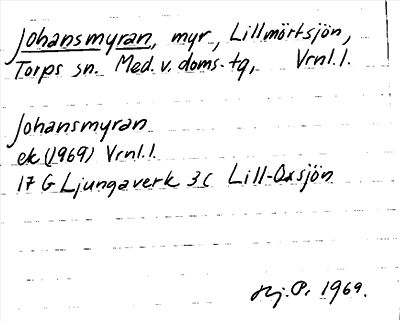 Johansmyran, myr, Lillmörtsjön,
Torps sn. Med. v. doms. tg, Vrnl.l.
Johansmyran
ek (1969) Vrnl.l.
17 G Ljungaverk 3 c Lill-Oxsjön
Hj. P. 1969.